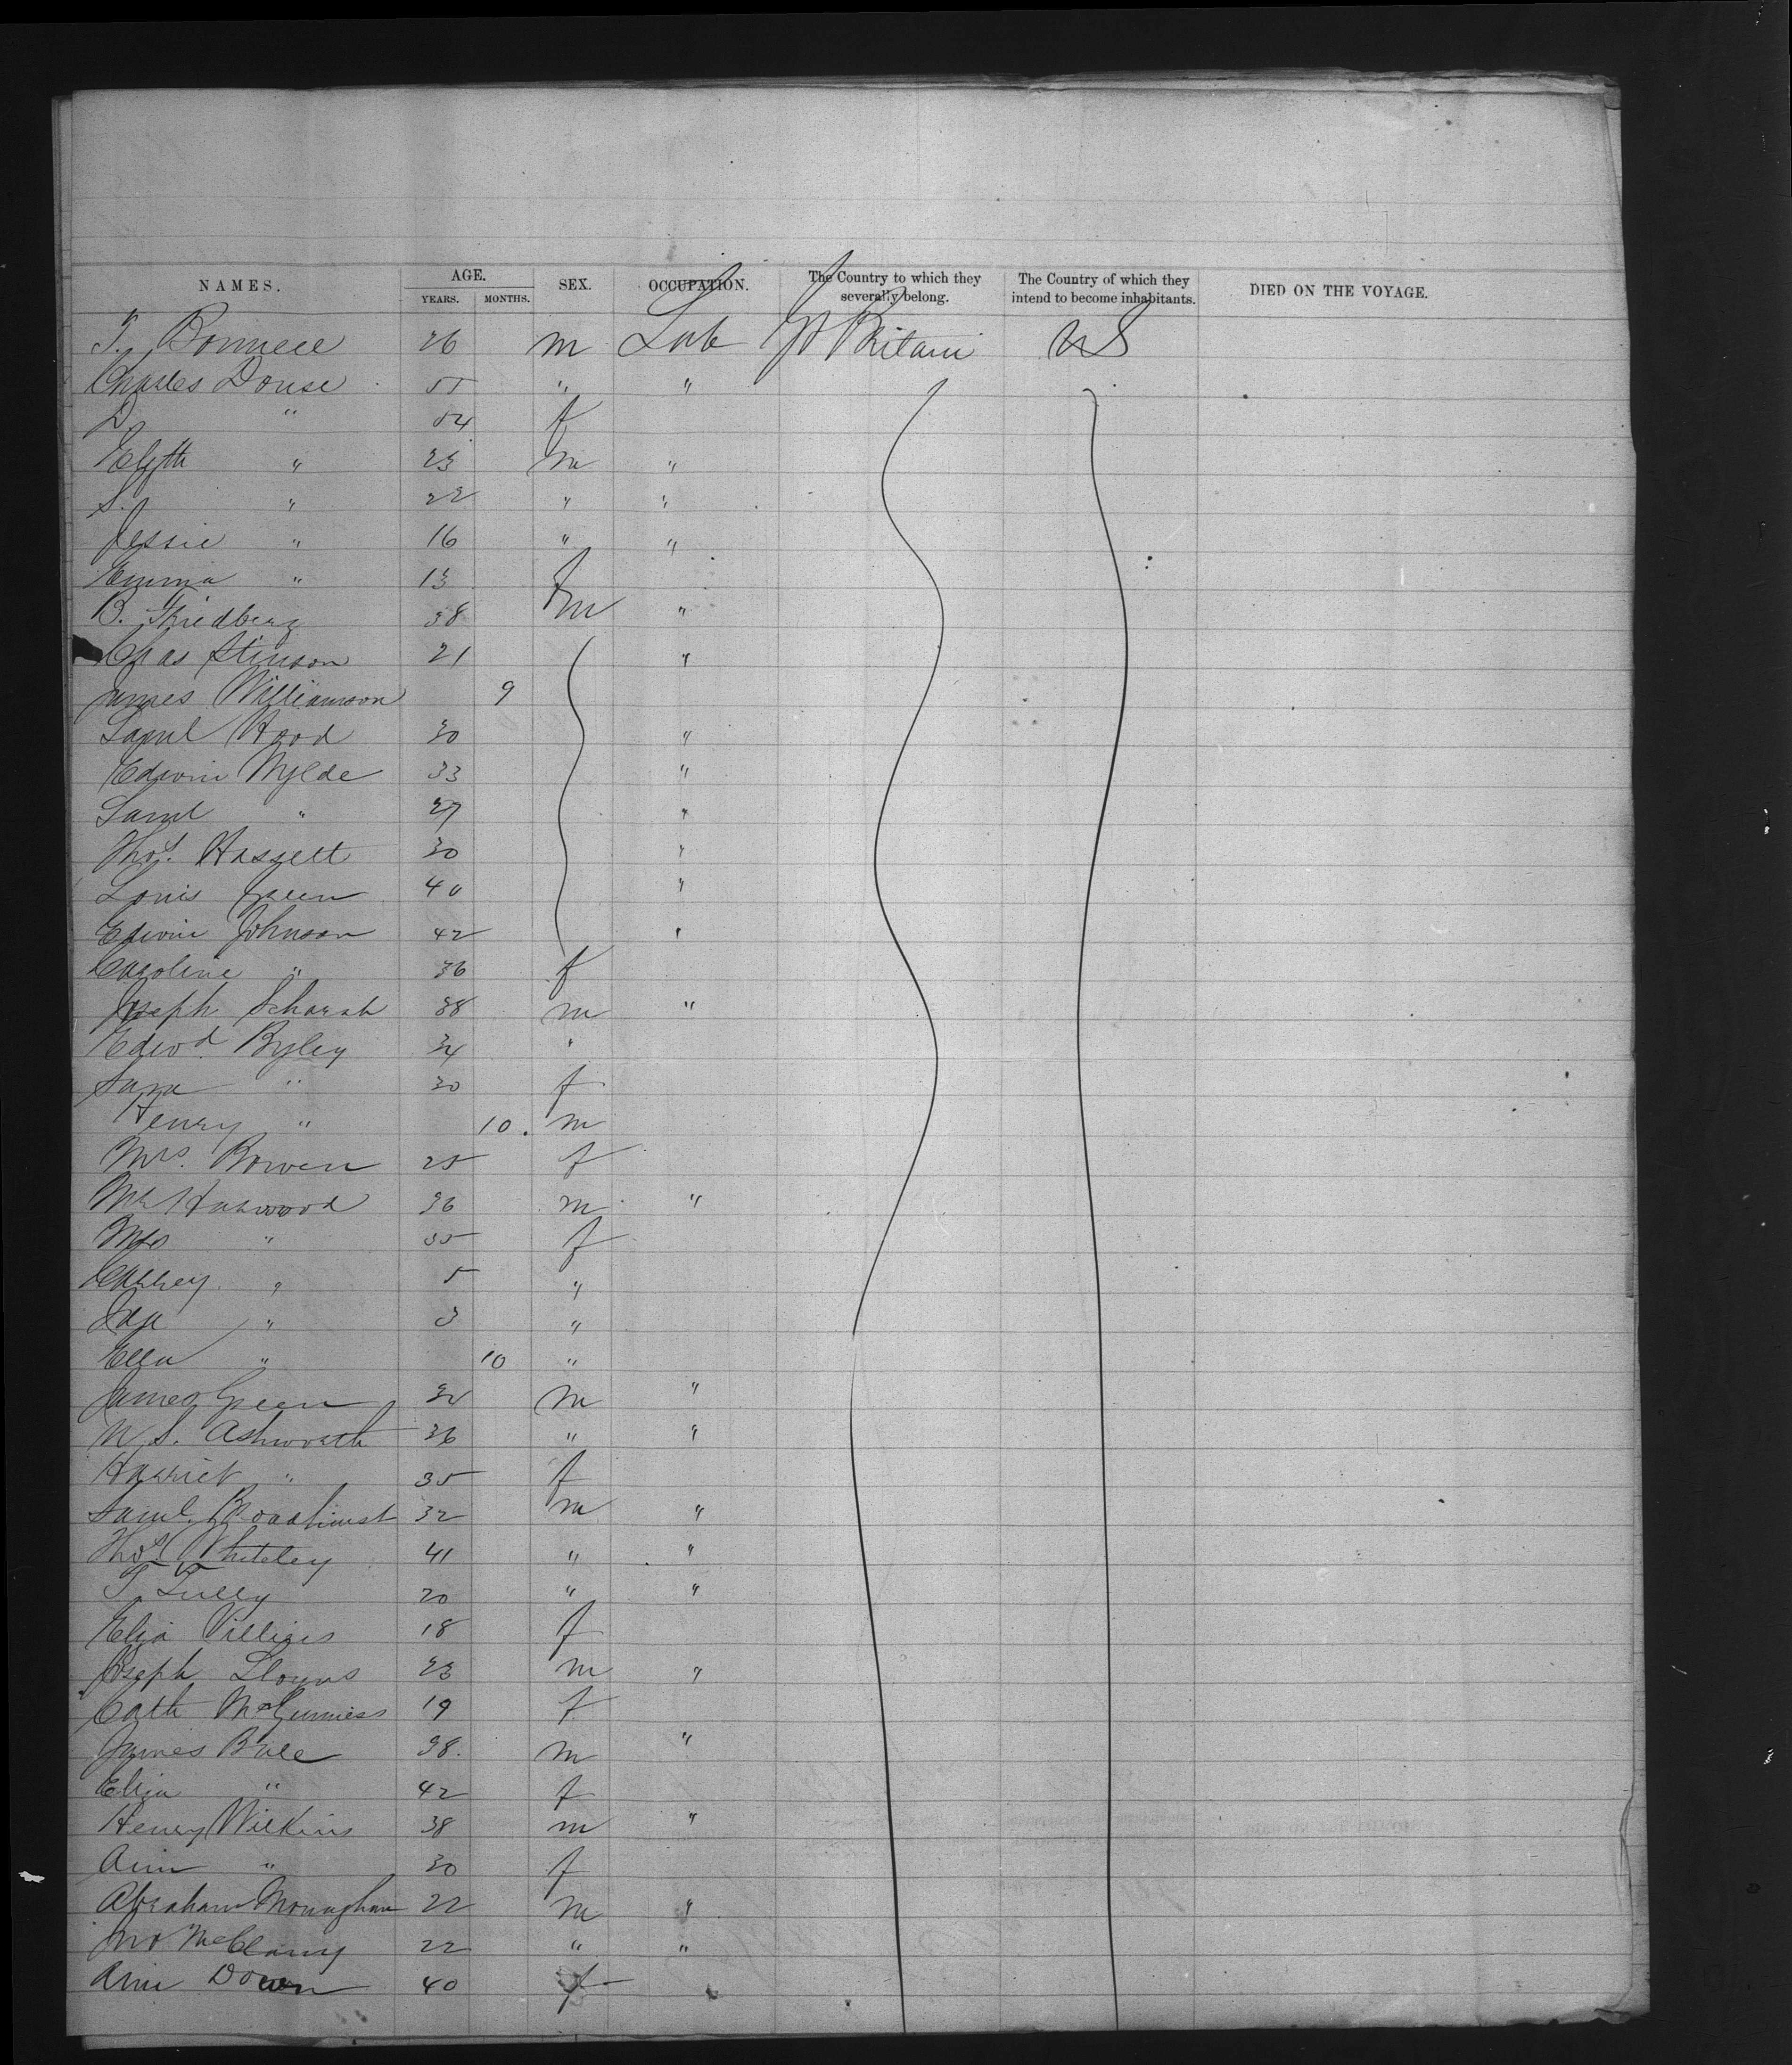 NAMES. AGE. YEARS. MONTHS. SEX. OCCUPATION. The Country to which they severally belong. The Country of which they intend to become inhabitants. DIED ON THE VOYAGE.
T. Bonnell 26 m Lab Gt Britain US
Charles Douse 55 " "
D. " 54 f
Elizth " 23 m "
S. " 22 " "
Jessie " 16 " "
Emma " 13 f
B. Friedberg 38 m "
Chas Stinson 21 "
James Williamson 9
Saml Hood 30 "
Edwin Wylde 33 "
Saml " 27 "
Thos. Hassell 30 "
Louis Green 40 "
Edwin Johnson 42 "
Caroline " 36 f
Joseph Scharah 38 m "
Edwd. Byley 34 "
Sara " 30 f
Henry " 10. m
Mrs. Bowen 25 f
Mr Harwood 36 m "
Mrs " 35 f
Carrey " 5 "
Ida " 3 "
Ella " 10 "
James Green 32 m "
W. S. Ashworth 36 " "
Harriet " 35 f
Saml. Broadhurst 32 m "
Thos Whiteley 41 " "
T. Tully 20 " "
Eliza 18 f
Joseph 23 m "
Cath McGunniess 19 f
James Bull 38. m "
Eliza " 42 f
Henry Wilkins 38 m "
Ann " 30 f
Abraham Monaghan 22 m "
Jno McClany 22 " "
Ann Down 40 f